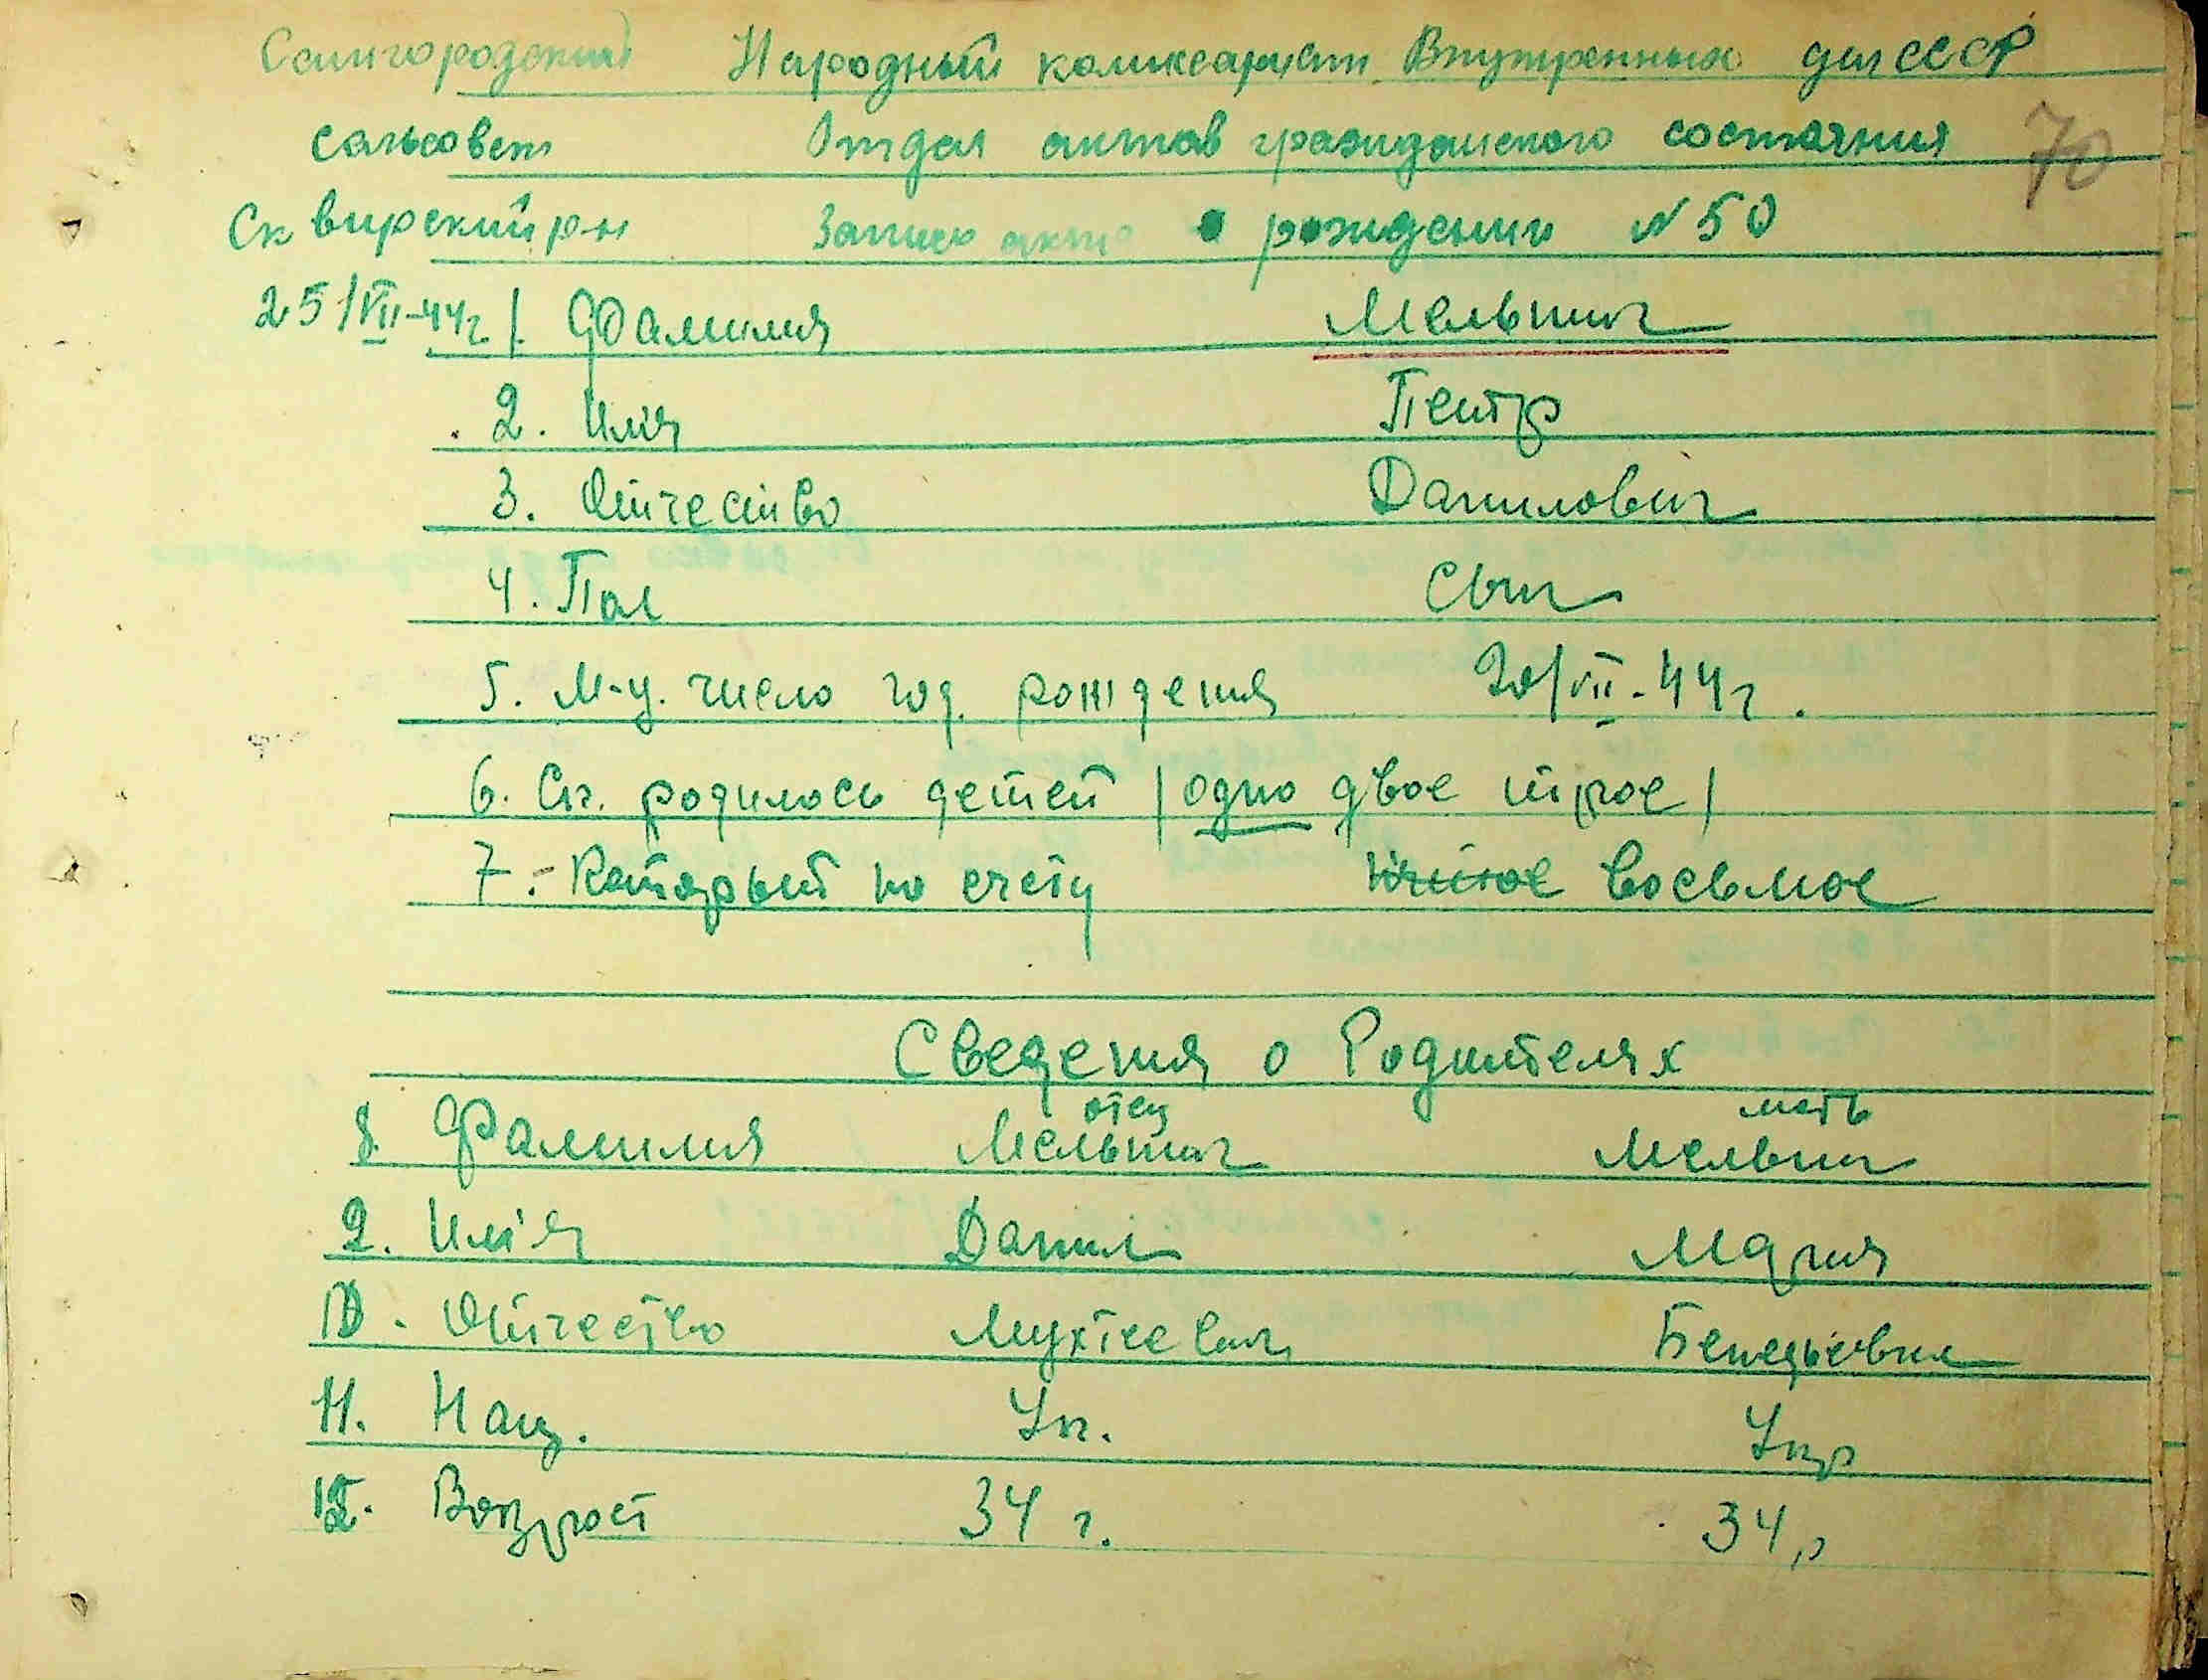 Самгородский Народный комиссариат Внутренных дел СССР
сельсовет Отдел актов гражданского состояния 70
Сквирский р-н Запись акта о рождении N 50
25/VII-44г. 1. Фамилия Мельник
2. Имя Петр
3. Отчество Данилович
4. Пол Сын
5. М-ц. число год рождения 20/VII-44г.
6. Ск. родилось детей /одно двое трое/
7. Который по счету восьмое
Сведения о Родителях
отец мать
8. Фамилия Мельник Мельник
9. Им'я Данил Мария
10. Отчество
11. Нац. Ук. Укр
12. Возрост 34 г. 34